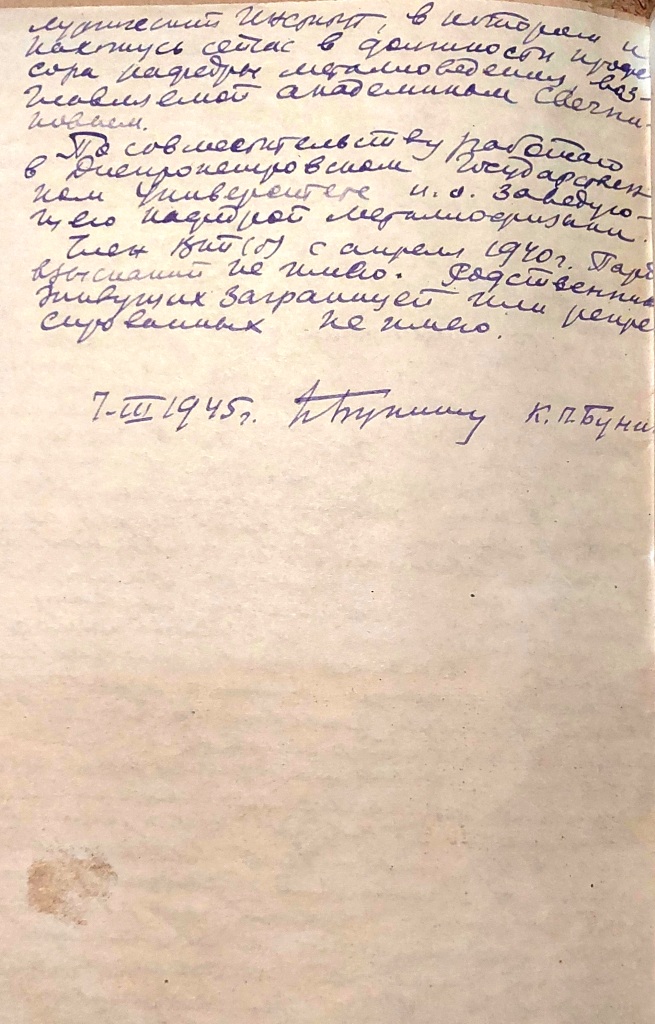 лургический Инст, в котором и
нахожусь сейчас в должности профес
сора кафедры металловедения, воз-
главляемой академиком Свечни-
ковым.
По совместительству работаю
в Днепропетровском Государствен
ном Университете и. о. заведую-
щего кафедрой металлофизики.
Член ВКП(б) с апреля 1940г. Парт
взысканий не имею. Родственников
живущих заграницей или репрес
сированных не имею.
7-III 1945г. К.П.Буни